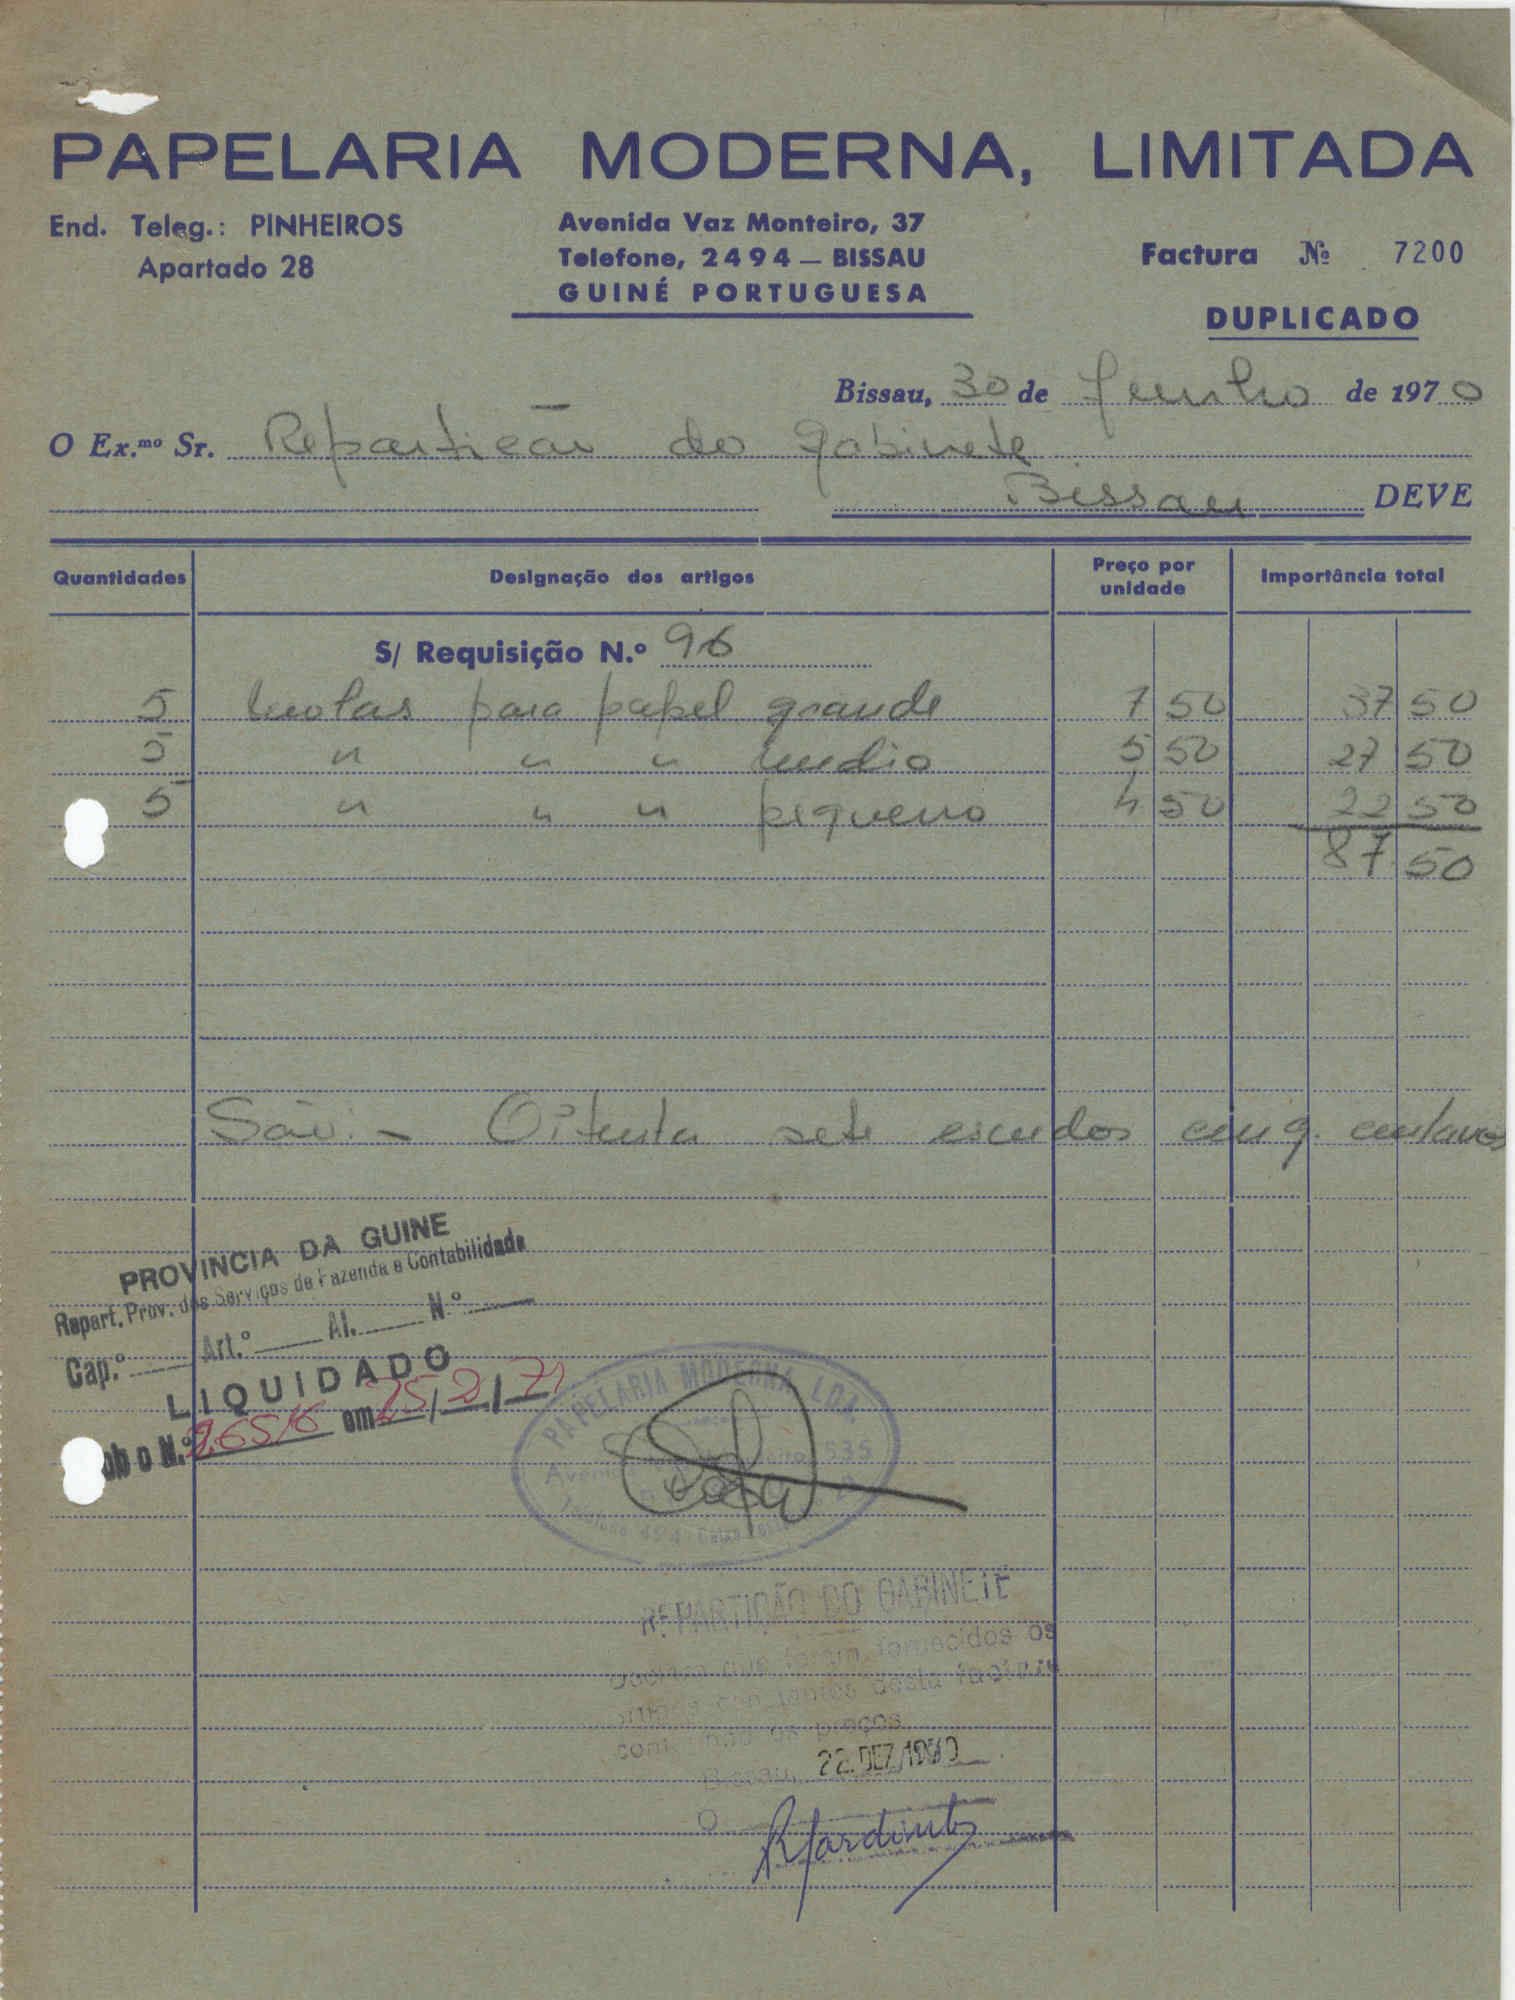 PAPELARIA MODERNA, LIMITADA
End. Teleg.: PINHEIROS
Apartado 28
Avenida Vaz Monteiro, 37
Telefone, 2494 — BISSAU
GUINÉ PORTUGUESA
Factura № 7200
DUPLICADO
Bissau, 30 de Junho de 1970
O Ex.mo Sr. Repartição do Gabinete
Bissau DEVE
Quantidades Designação dos artigos Preço por unidade Importância total
S/ Requisição N.º 96
5 Molas para papel grande 7 50 37 50
5 " " " medio 5 50 27 50
5 " " " pequeno 4 50 22 50
87 50
São:- Oitenta sete escudos cinq. centavos
PROVINCIA DA GUINE
Repart. Prov. dos Serviços de Fazenda e Contabilidade
Cap.º Art.º Al. N.º
LIQUIDADO
ob o N.º em 25/2/71
PAPELARIA MODERNA, LDA.
REPARTIÇÃO DO GABINETE
que foram fornecidos os
constantes desta factura
os preços
Bissau, 22.DEZ.1970
O